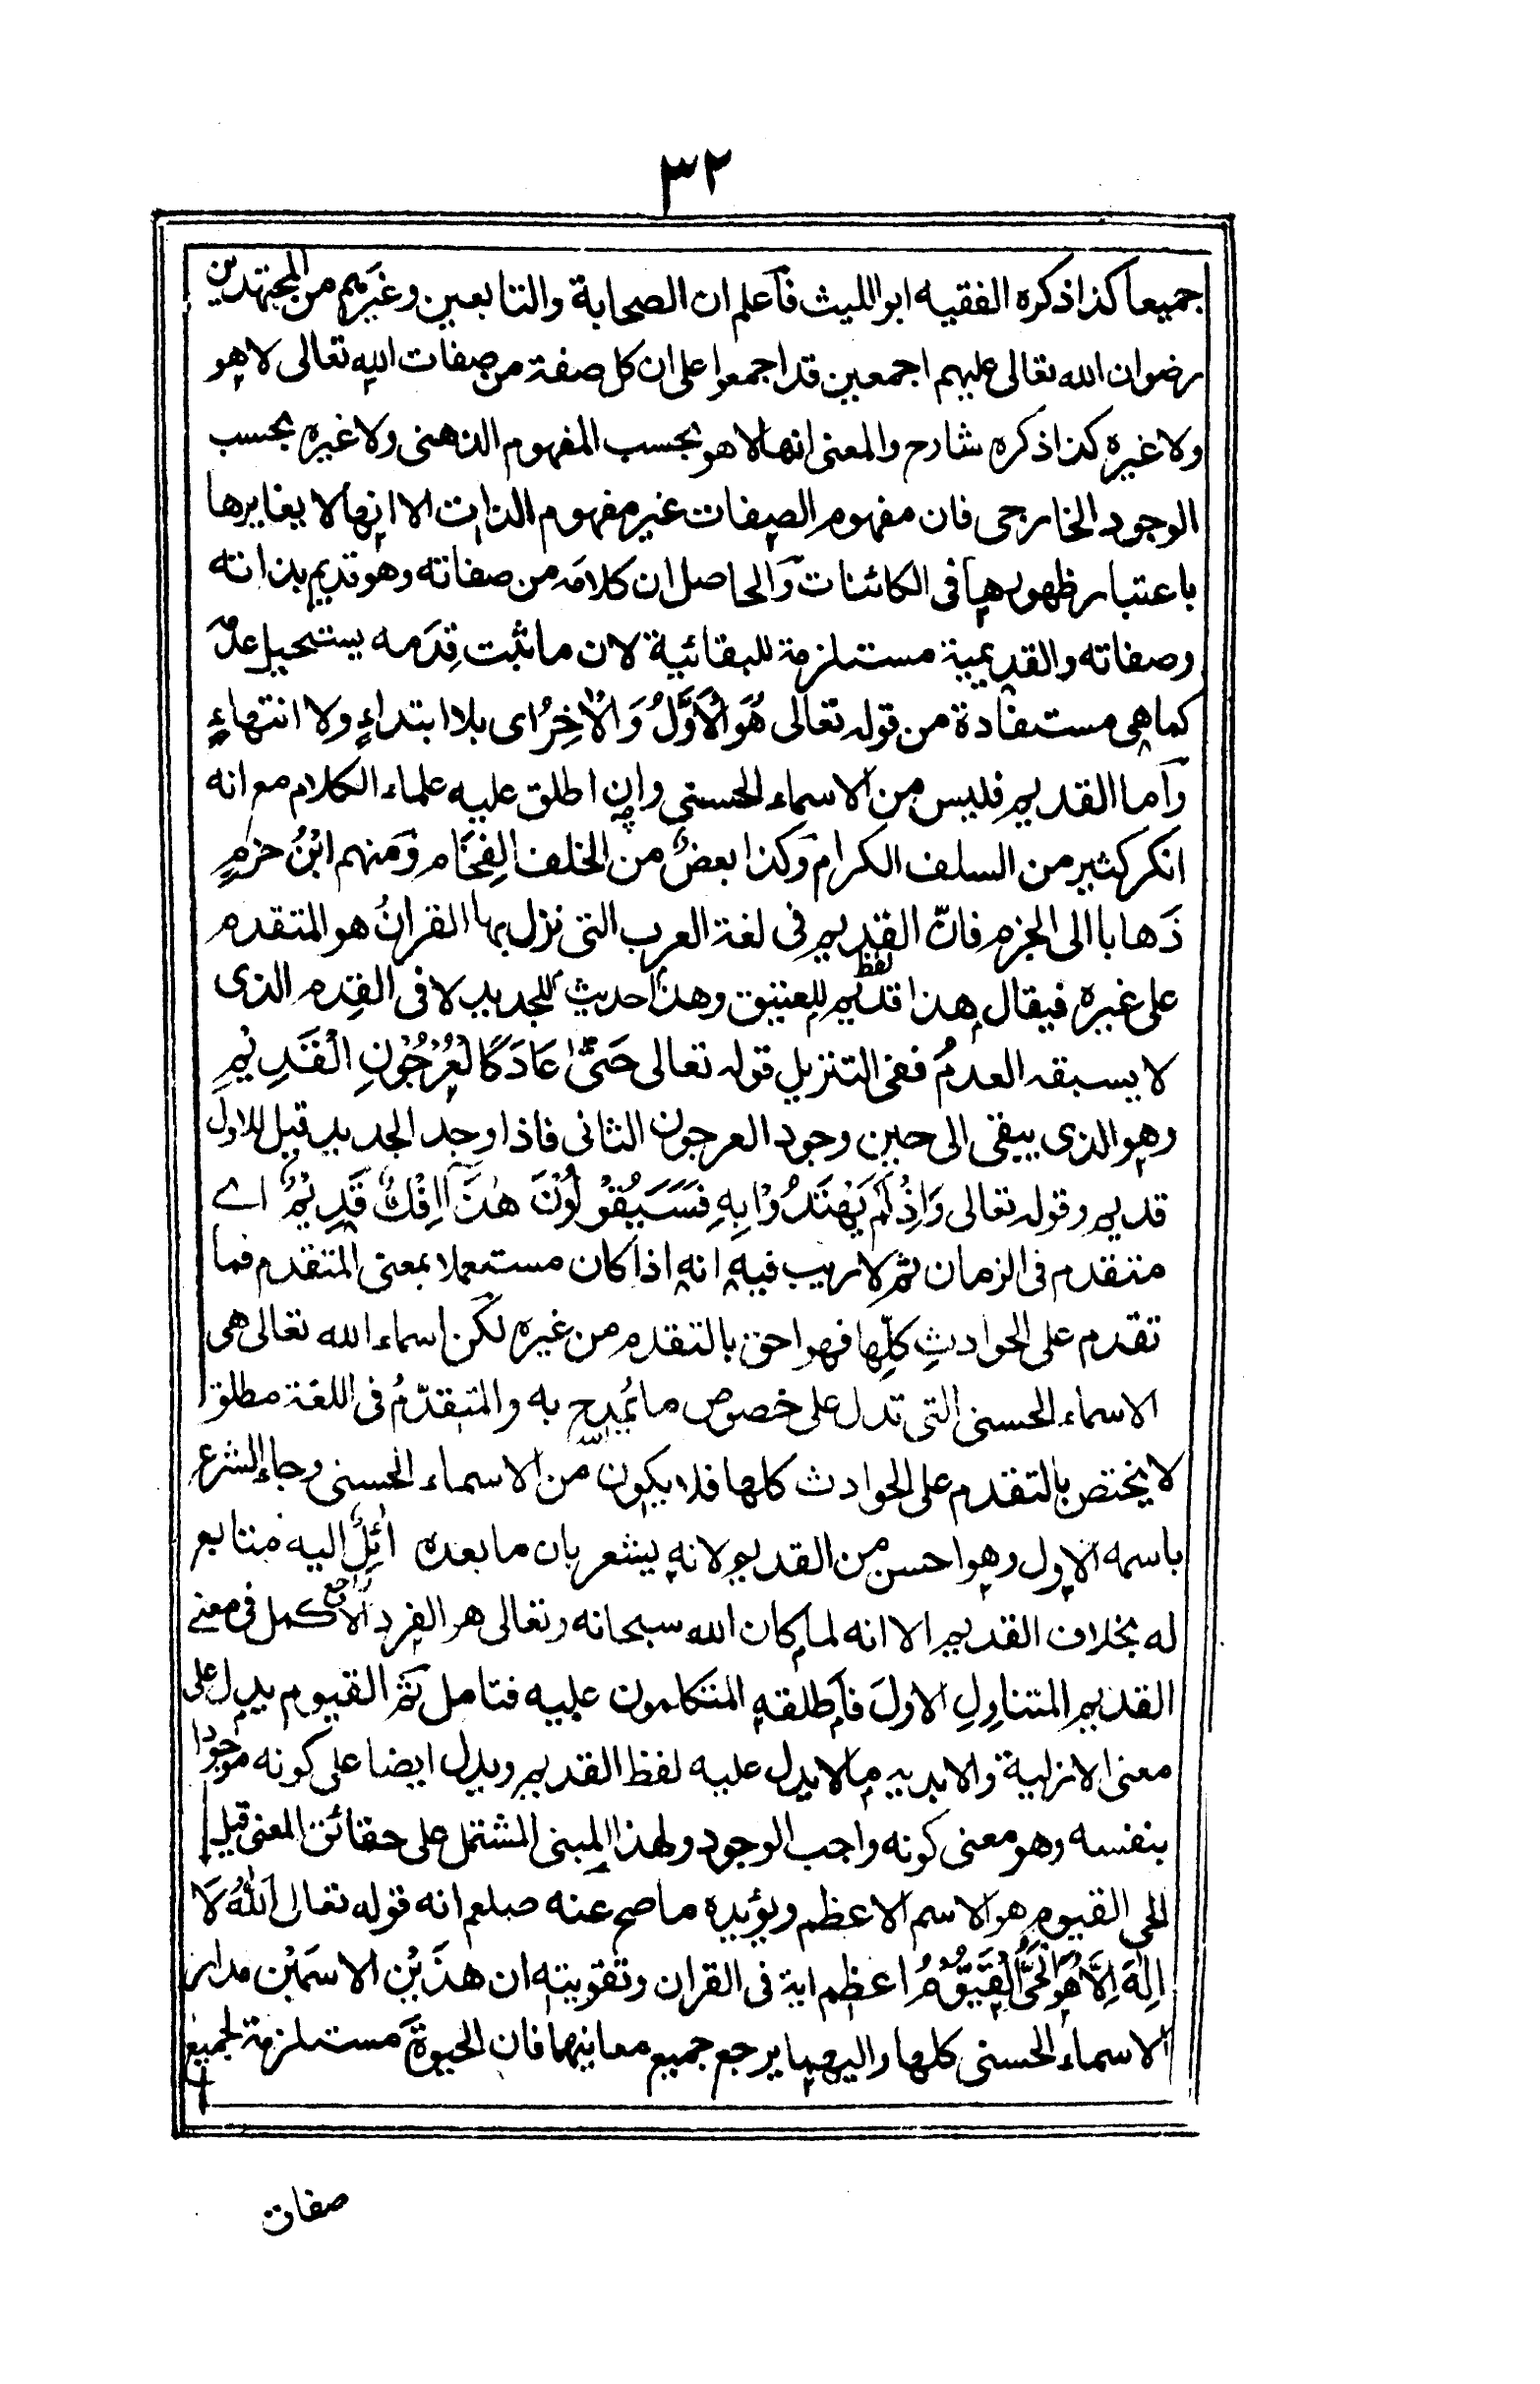 ٣٢
جميعا كذا ذكره الفقيه ابو الليث فاعلم ان الصحابة والتابعين وغيرهم من المجتهدين
رضوان الله تعالى عليهم اجمعين قد اجمعوا على ان كل صفة من صفات الله تعالى لا هو
ولا غيره كذا ذكره شارح والمعنى انها لا هو بحسب المفهوم الذهنى ولا غيره بحسب
الوجود الخارجى فان مفهوم الصفات غير مفهوم الذات الا انها لا يغايرها
باعتبار ظهورها فى الكائنات والحاصل ان كلامه من صفاته وهو قديم بذاته
وصفاته والقديمية مستلزمة للبقائية لان ما ثبت قِدَمه يستحيل عدمه
كما هى مستفادة من قوله تعالى هُوَ الْاَوَّلُ وَالْاٰخِرُ اى بلا ابتداءٍ ولا انتهاءٍ
وَاما القديم فليس من الاسماء الحسنى وان اطلق عليه علماء الكلام مع انه
انكر كثير من السلف الكرام وكذا بعضٌ من الخلف الفِخَام وَمنهم ابْنُ حزمٍ
ذَهابا الى الجزم فانّ القديم فى لغة العرب التى نزل بها القرانُ هو المتقدم
على غيره فيقال هذا قديم للعتيق وهذا حديث للجديد لا فى القِدم الذى
لفظ
لا يسبقه العدمُ ففى التنزيل قوله تعالى حَتّٰى عَادَ كَالْعُرْجُوْنِ الْقَدِيْمِ
وهو الذى يبقى الى حين وجود العرجون الثانى فاذا وجد الجديد قيل للاول
قديم وقوله تعالى وَاِذْ لَمْ يَهْتَدُوْا بِهٖ فَسَيَقُوْلُوْنَ هٰذَا اِفْكٌ قَدِيْمٌ اے
متقدم فى الزمان ثم لا ريب فيه انه اذا كان مستعملا بمعنى المتقدم فما
تقدم على الحوادثِ كلِّها فهو احق بالتقدم من غيره لكن اسماء الله تعالى هى
الاسماء الحسنى التى تدل على خصوص ما يُمدح به والمتقدّمُ فى اللغة مطلق
لا يختص بالتقدم على الحوادث كلها فلا يكون من الاسماء الحسنى وجاء الشرع
باسمه الاول وهو احسن من القديم لانه يشعر بان ما بعده اٰئِلٌ اليه متابع
راجع
له بخلاف القديم الا انه لما كان الله سبحانه وتعالى هو الفرد الاكمل فى معنے
القديم المتناولِ الاولَ فاطلقه المتكلمون عليه فتامل ثم القيوم يدل على
معنى الازلية والابديه ما لا يدل عليه لفظ القديم ويدل ايضا على كونه موجودا
بنفسه وهو معنى كونه واجب الوجود ولهذا المبنى المشتمل على حقائق المعنى قيل
الحى القيوم هو الاسم الاعظم ويؤيده ما صح عنه صلعم انه قوله تعالى اَللّٰهُ لَا
اِلٰهَ اِلَّا هُوَ الْحَىُّ الْقَيُّوْمُ اعظم اية فى القران وتقويته ان هذَيْن الاسمَيْن مدار
الاسماء الحسنى كلها واليهما يرجع جميع معانيهما فان الحيوةَ مستلزمة لجميع
صفات